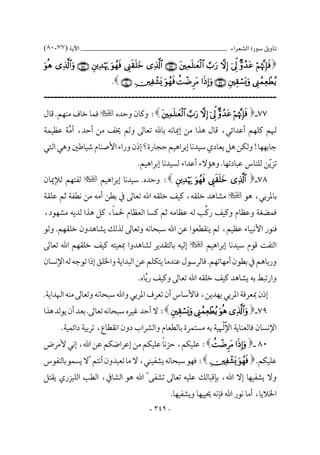 تأويل سورة الشعراء الآية (٧٧-٨٠)
﴿ فَإِنَّهُمْ عَدُوٌّ لِّي إِلَّا رَبَّ الْعَالَمِينَ ۝ الَّذِي خَلَقَنِي فَهُوَ يَهْدِينِ ۝ وَالَّذِي هُوَ
يُطْعِمُنِي وَيَسْقِينِ ۝ وَإِذَا مَرِضْتُ فَهُوَ يَشْفِينِ ۝ ﴾ .
٧٧- ﴿ فَإِنَّهُمْ عَدُوٌّ لِّي إِلَّا رَبَّ الْعَالَمِينَ ﴾ : وكان وحده فما خاف منهم. قال
لهم كلهم أعدائي، قال هذا من إيمانه بالله تعالى ولم يخف من أحد، أمَّة عظيمة
جابهها! ولكن هل يعادي سيدنا إبراهيم حجارة؟ إذن وراء الأصنام شياطين وهي التي
تزيِّن للناس عبادتها. وهؤلاء أعداء لسيدنا إبراهيم.
٧٨- ﴿ الَّذِي خَلَقَنِي فَهُوَ يَهْدِينِ ﴾ : وحده. سيدنا إبراهيم لفتهم للإيمان
بالمربي، هو مشاهد خلقه، كيف خلقه الله تعالى في بطن أمه من نطفة ثم علقة
فمضغة وعظام وكيف ركّب له عظامه ثم كسا العظام لحماً، كل هذا لديه مشهود،
فنور الأنبياء عظيم، لم ينقطعوا عن الله سبحانه وتعالى لذلك يشاهدون خلقهم. ولو
التفت قوم سيدنا إبراهيم إليه بالتقدير لشاهدوا بمعيته كيف خلقهم الله تعالى
ورباهم في بطون أمهاتهم. فالرسول عندما يتكلم عن البداية والخلق إذا توجه له الإنسان
وارتبط به يشاهد كيف خلقه الله تعالى وكيف ربَّاه.
إذن بمعرفة المربي يهدين، فالأساس أن تعرف المربي والله سبحانه وتعالى منه الهداية.
٧٩- ﴿ وَالَّذِي هُوَ يُطْعِمُنِي وَيَسْقِينِ ﴾ : لا أحد غيره سبحانه تعالى. بعد أن يولد هذا
الإنسان فالعناية الإلٓهية به مستمرة بالطعام والشراب دون انقطاع، تربية دائمية.
٨٠- ﴿ وَإِذَا مَرِضْتُ ﴾ : عليكم، حزناً عليكم من إعراضكم عن الله، إني لأمرض
عليكم. ﴿ فَهُوَ يَشْفِينِ ﴾ : فهو سبحانه يشفيني، لا ما تعبدون أنتم، لا يسمو بالنفوس
ولا يشفيها إلا الله، بإقبالك عليه تعالى تشفى، الله هو الشافي، الطب الليزري يقتل
الخلايا، أما نور الله فإنه يحييها ويشفيها.
- ٣٤٩ -